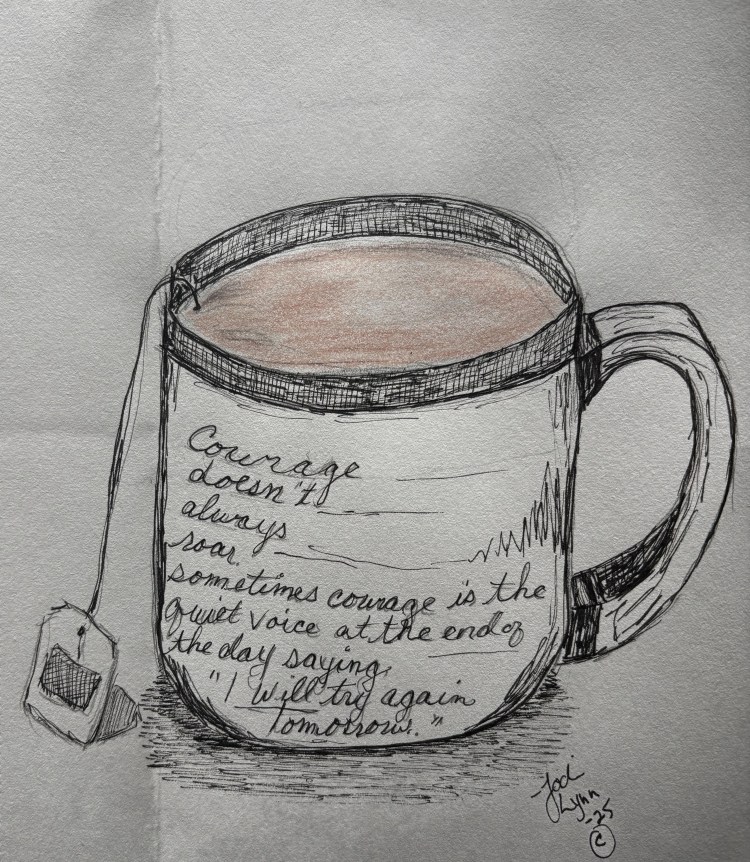 Courage
doesn't
always
roar.
sometimes courage is the
quiet voice at the end of
the day saying,
"I will try again
tomorrow."
Jodi
Lynn
-25
©